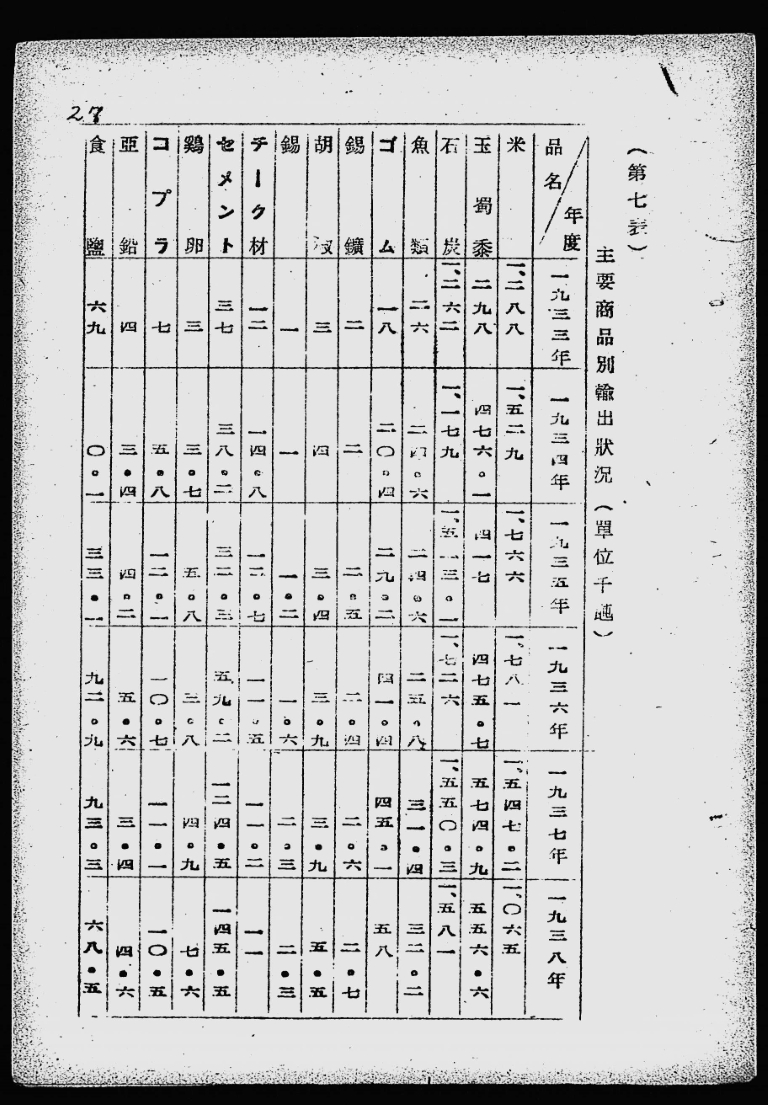 27
(第七表)
主要商品別輸出狀況(單位千瓲)
品名 年度 一九三三年 一九三四年 一九三五年 一九三六年 一九三七年 一九三八年
米 一、二八八 一、五二九 一、七六六 一、七八一 一、五四七・二 一、〇六五
玉蜀黍 二九八 四七六・一 四一七 四七五・七 五七四・九 五五六・六
石炭 一、二六二 一、一七九 一、五一三・一 一、七二六 一、五五〇・三 一、五八一
魚類 二六 二四・六 二四・六 二五・八 三一・四 三二・二
ゴム 一八 二〇・四 二九・二 四一・四 四五・一 五八
錫鑛 二 二 二・五 二・四 二・六 二・七
胡椒 三 四 三・四 三・九 三・九 五・五
錫 一 一 一・二 一・六 二・三 二・三
チーク材 一二 一四・八 一二・七 一一・五 一一・二 一一
セメント 三七 三八・二 三二・三 五九・二 一二四・五 一四五・五
鷄卵 三 三・七 五・八 三・八 四・九 七・六
コプラ 七 五・八 一二・一 一〇・七 一一・一 一〇・五
亜鉛 四 三・四 四・二 五・六 三・四 四・六
食鹽 六九 〇・一 三三・一 九二・九 九三・三 六八・五